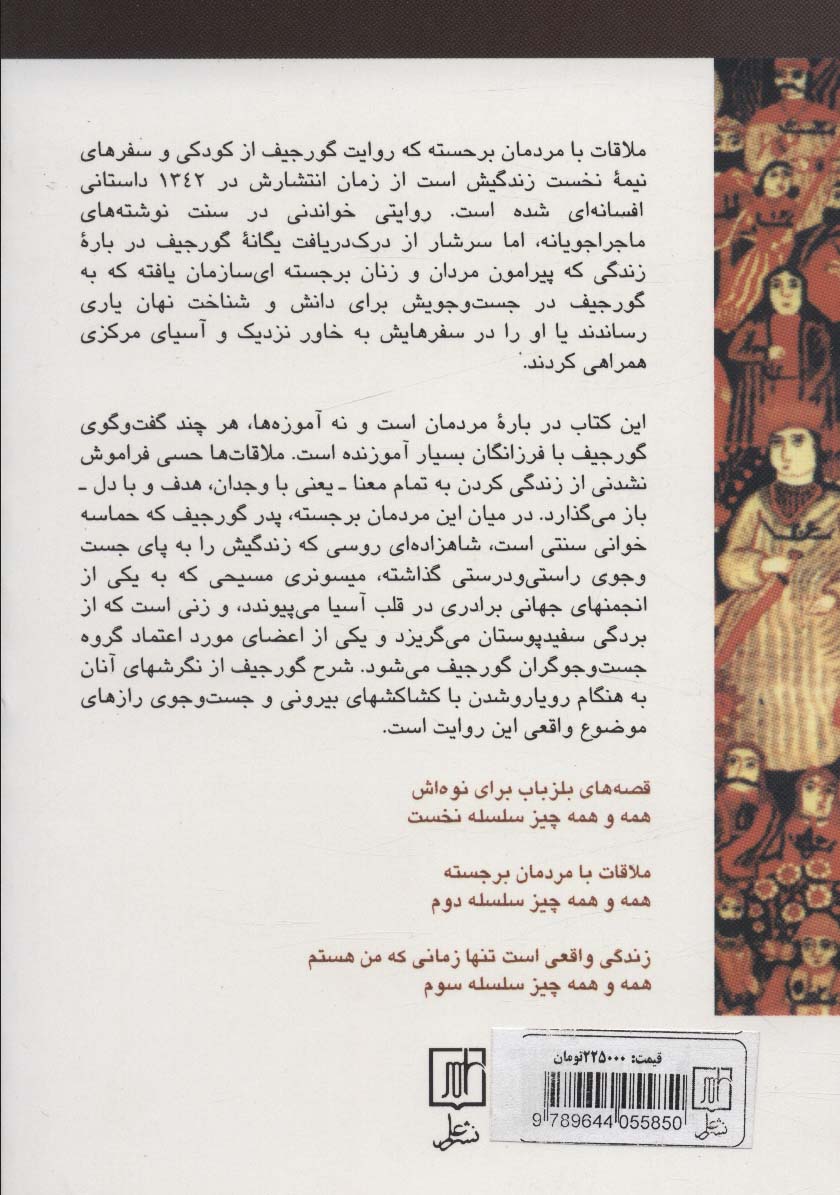 ملاقات با مردمان برحسته که روایت گورجیف از کودکی و سفرهای
نیمۀ نخست زندگیش است از زمان انتشارش در ۱۳٤۲ داستانی
افسانه‌ای شده است. روایتی خواندنی در سنت نوشته‌های
ماجراجویانه، اما سرشار از درک‌دریافت یگانۀ گورجیف در بارۀ
زندگی که پیرامون مردان و زنان برجسته ای‌سازمان یافته که به
گورجیف در جست‌وجویش برای دانش و شناخت نهان یاری
رساندند یا او را در سفرهایش به خاور نزدیک و آسیای مرکزی
همراهی کردند.
این کتاب در بارۀ مردمان است و نه آموزه‌ها، هر چند گفت‌وگوی
گورجیف با فرزانگان بسیار آموزنده است. ملاقات‌ها حسی فراموش
نشدنی از زندگی کردن به تمام معنا ـ یعنی با وجدان، هدف و با دل ـ
باز می‌گذارد. در میان این مردمان برجسته، پدر گورجیف که حماسه
خوانی سنتی است، شاهزاده‌ای روسی که زندگیش را به پای جست
وجوی راستی‌ودرستی گذاشته، میسونری مسیحی که به یکی از
انجمنهای جهانی برادری در قلب آسیا می‌پیوندد، و زنی است که از
بردگی سفیدپوستان می‌گریزد و یکی از اعضای مورد اعتماد گروه
جست‌وجوگران گورجیف می‌شود. شرح گورجیف از نگرشهای آنان
به هنگام رویاروشدن با کشاکشهای بیرونی و جست‌وجوی رازهای
موضوع واقعی این روایت است.
قصه‌های بلزباب برای نوه‌اش
همه و همه چیز سلسله نخست
ملاقات با مردمان برجسته
همه و همه چیز سلسله دوم
زندگی واقعی است تنها زمانی که من هستم
همه و همه چیز سلسله سوم
قیمت: ۲۲۵۰۰۰تومان
9 789644 055850
نشر علم
نشر علم